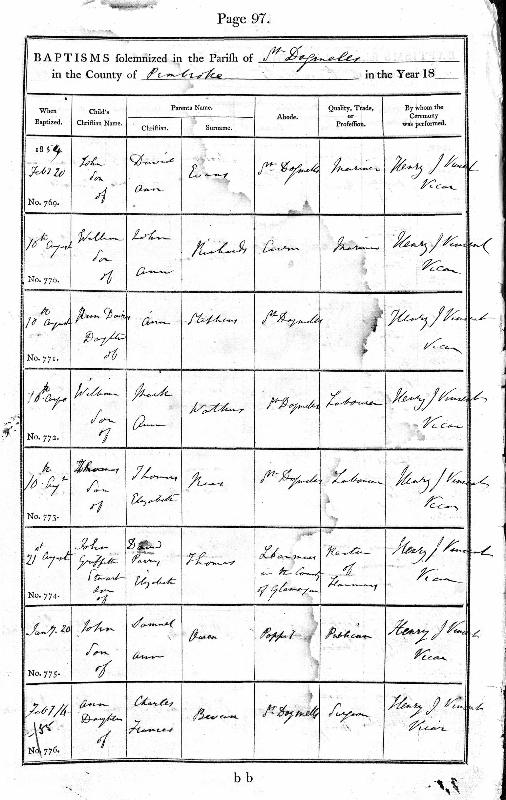 Page 97.
BAPTISMS solemnized in the Parish of St. Dogmells
in the County of Pembroke in the Year 18
When Baptized. Child's Christian Name. Parents Name. Christian. Surname. Abode. Quality, Trade, or Profession. By whom the Ceremony was performed.
1854
Feb 20 John Son of David Ann Evans St. Dogmells Mariner Henry J Vincent Vicar
No. 769.
10th August William Son of John Ann Richards Mariner Henry J Vincent Vicar
No. 770.
10th August Ann Daughter of Ann Stephens St. Dogmells Henry J Vincent Vicar
No. 771.
William Son of Mark Ann Watkins St Dogmells Labourer Henry J Vincent Vicar
No. 772.
10th Augt Thomas Son of Thomas Elizabeth St. Dogmells Labourer Henry J Vincent Vicar
No. 773.
21st August John Griffith Stewart Son of David Parry Elizabeth Thomas in the County of Glamorgan Rector of Henry J Vincent Vicar
No. 774.
Jany. 20 John Son of Samuel Ann Owen Poppit Henry J Vincent Vicar
No. 775.
Feby /55 Ann Daughter of Charles Frances Bevan St Dogmells Surgeon Henry J Vincent Vicar
No. 776.
b b